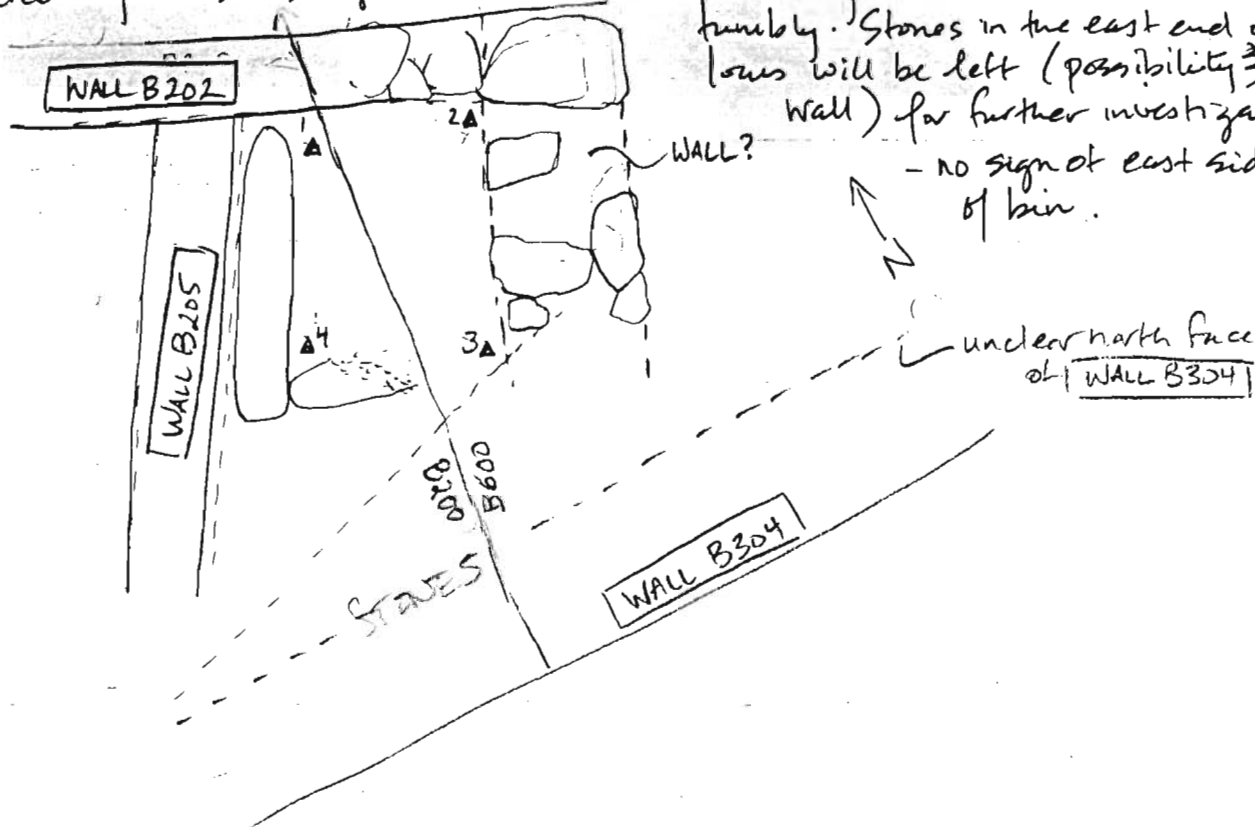 tumbly. Stones in the east end of
locus will be left (possibility
wall) for further investiga
- no sign of east sid
of bin.
WALL B202
2
WALL?
N
WALL B205
4
3
unclear north face
of WALL B304
B200
B600
STONES
WALL B304